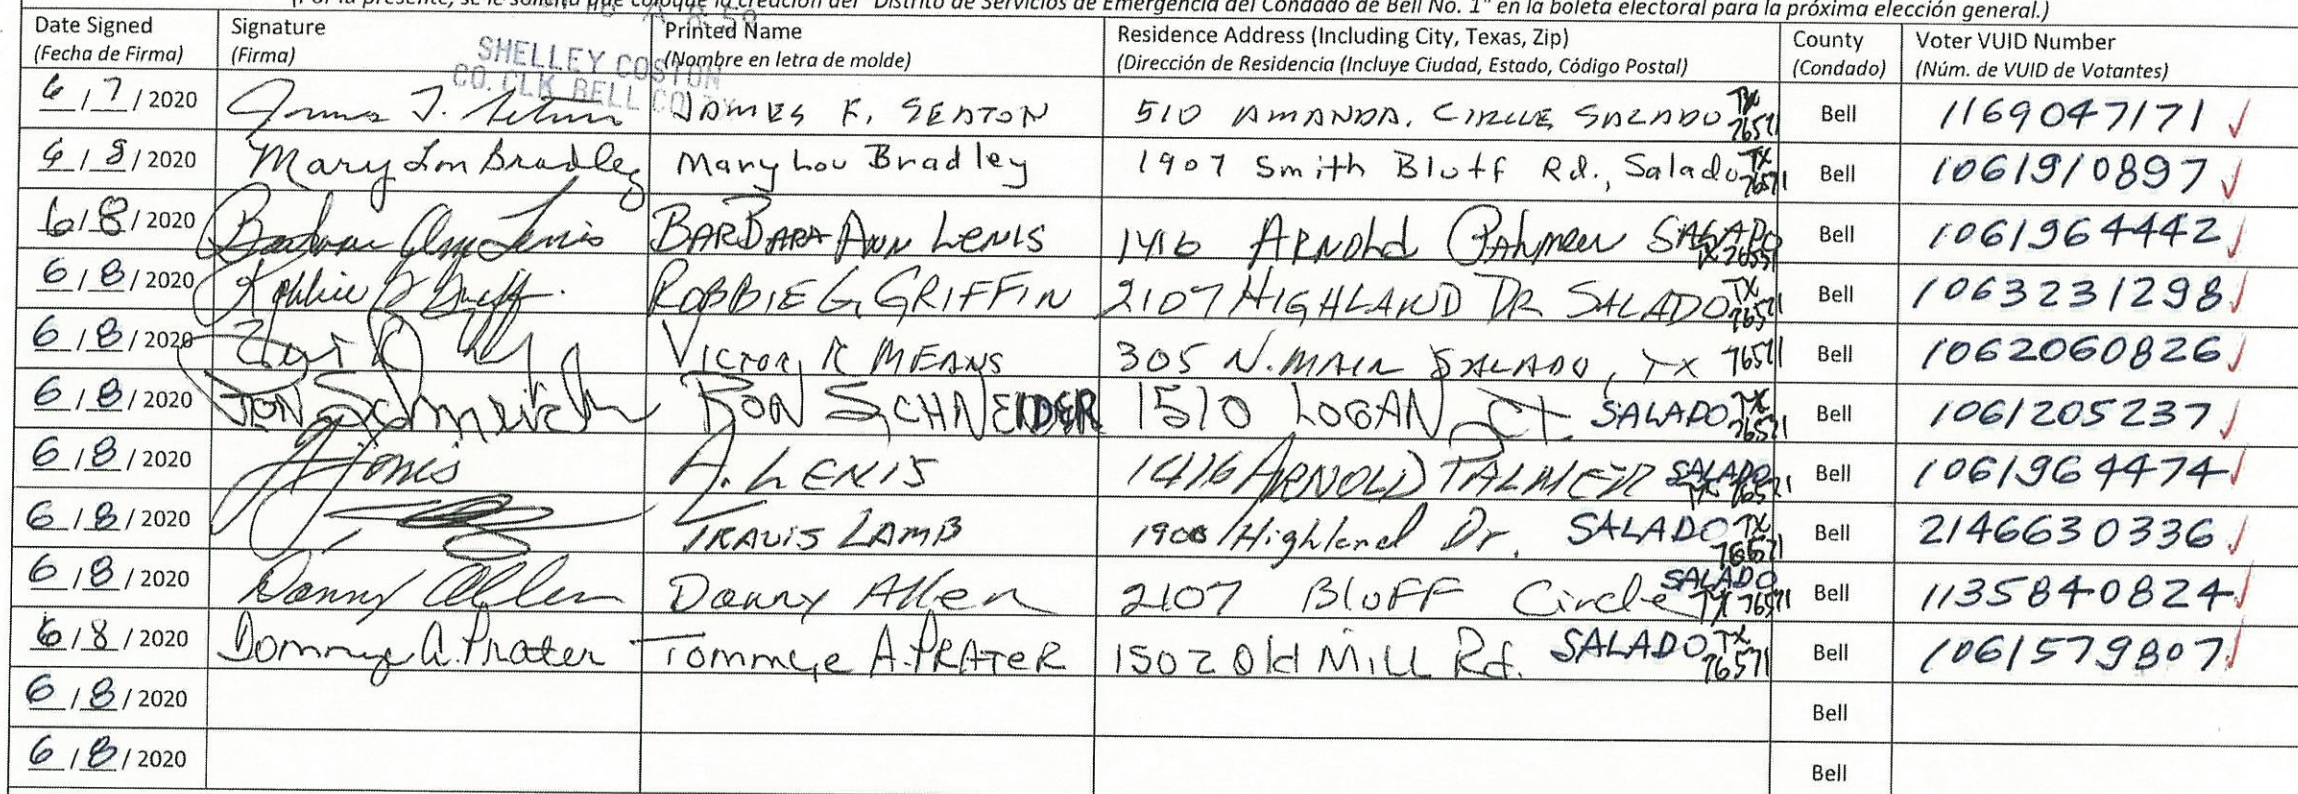 (Por la presente, se le solicita que coloque la creación del "Distrito de Servicios de Emergencia del Condado de Bell No. 1" en la boleta electoral para la próxima elección general.)
Date Signed Signature Printed Name Residence Address (Including City, Texas, Zip) County Voter VUID Number
(Fecha de Firma) (Firma) (Nombre en letra de molde) (Dirección de Residencia (Incluye Ciudad, Estado, Código Postal) (Condado) (Núm. de VUID de Votantes)
SHELLEY COSTON
CO. CLK BELL CO
6/7/2020 JAMES F. SEATON 510 AMANDA. CIRCLE SALADO TX 76571 Bell 1169047171 ✓
6/8/2020 Mary Lou Bradley Mary Lou Bradley 1907 Smith Bluff Rd., Salado TX 76571 Bell 1061910897 ✓
6/8/2020 Barbara Ann Lenis BARBARA ANN LENIS 1416 ARNOLD Palmer SALADO TX 76571 Bell 1061964442 ✓
6/8/2020 Robbie G Griff ROBBIE G GRIFFIN 2107 HIGHLAND DR SALADO TX 76571 Bell 1063231298 ✓
6/8/2020 VICTOR R MEANS 305 N. MAIN SALADO, TX 76571 Bell 1062060826 ✓
6/8/2020 JON Schneider JON SCHNEIDER 1510 LOGAN CT SALADO TX 76571 Bell 1061205237 ✓
6/8/2020 A. LENIS 1416 ARNOLD PALMER SALADO TX 76571 Bell 1061964474 ✓
6/8/2020 TRAVIS LAMB 1908 Highland Dr. SALADO TX 76571 Bell 2146630336 ✓
6/8/2020 Danny Allen Danny Allen 2107 Bluff Circle SALADO TX 76571 Bell 1135840824 ✓
6/8/2020 Tommye A. Prater Tommye A. PRATER 1502 Old Mill Rd. SALADO TX 76571 Bell 1061579807 ✓
6/8/2020 Bell
6/8/2020 Bell